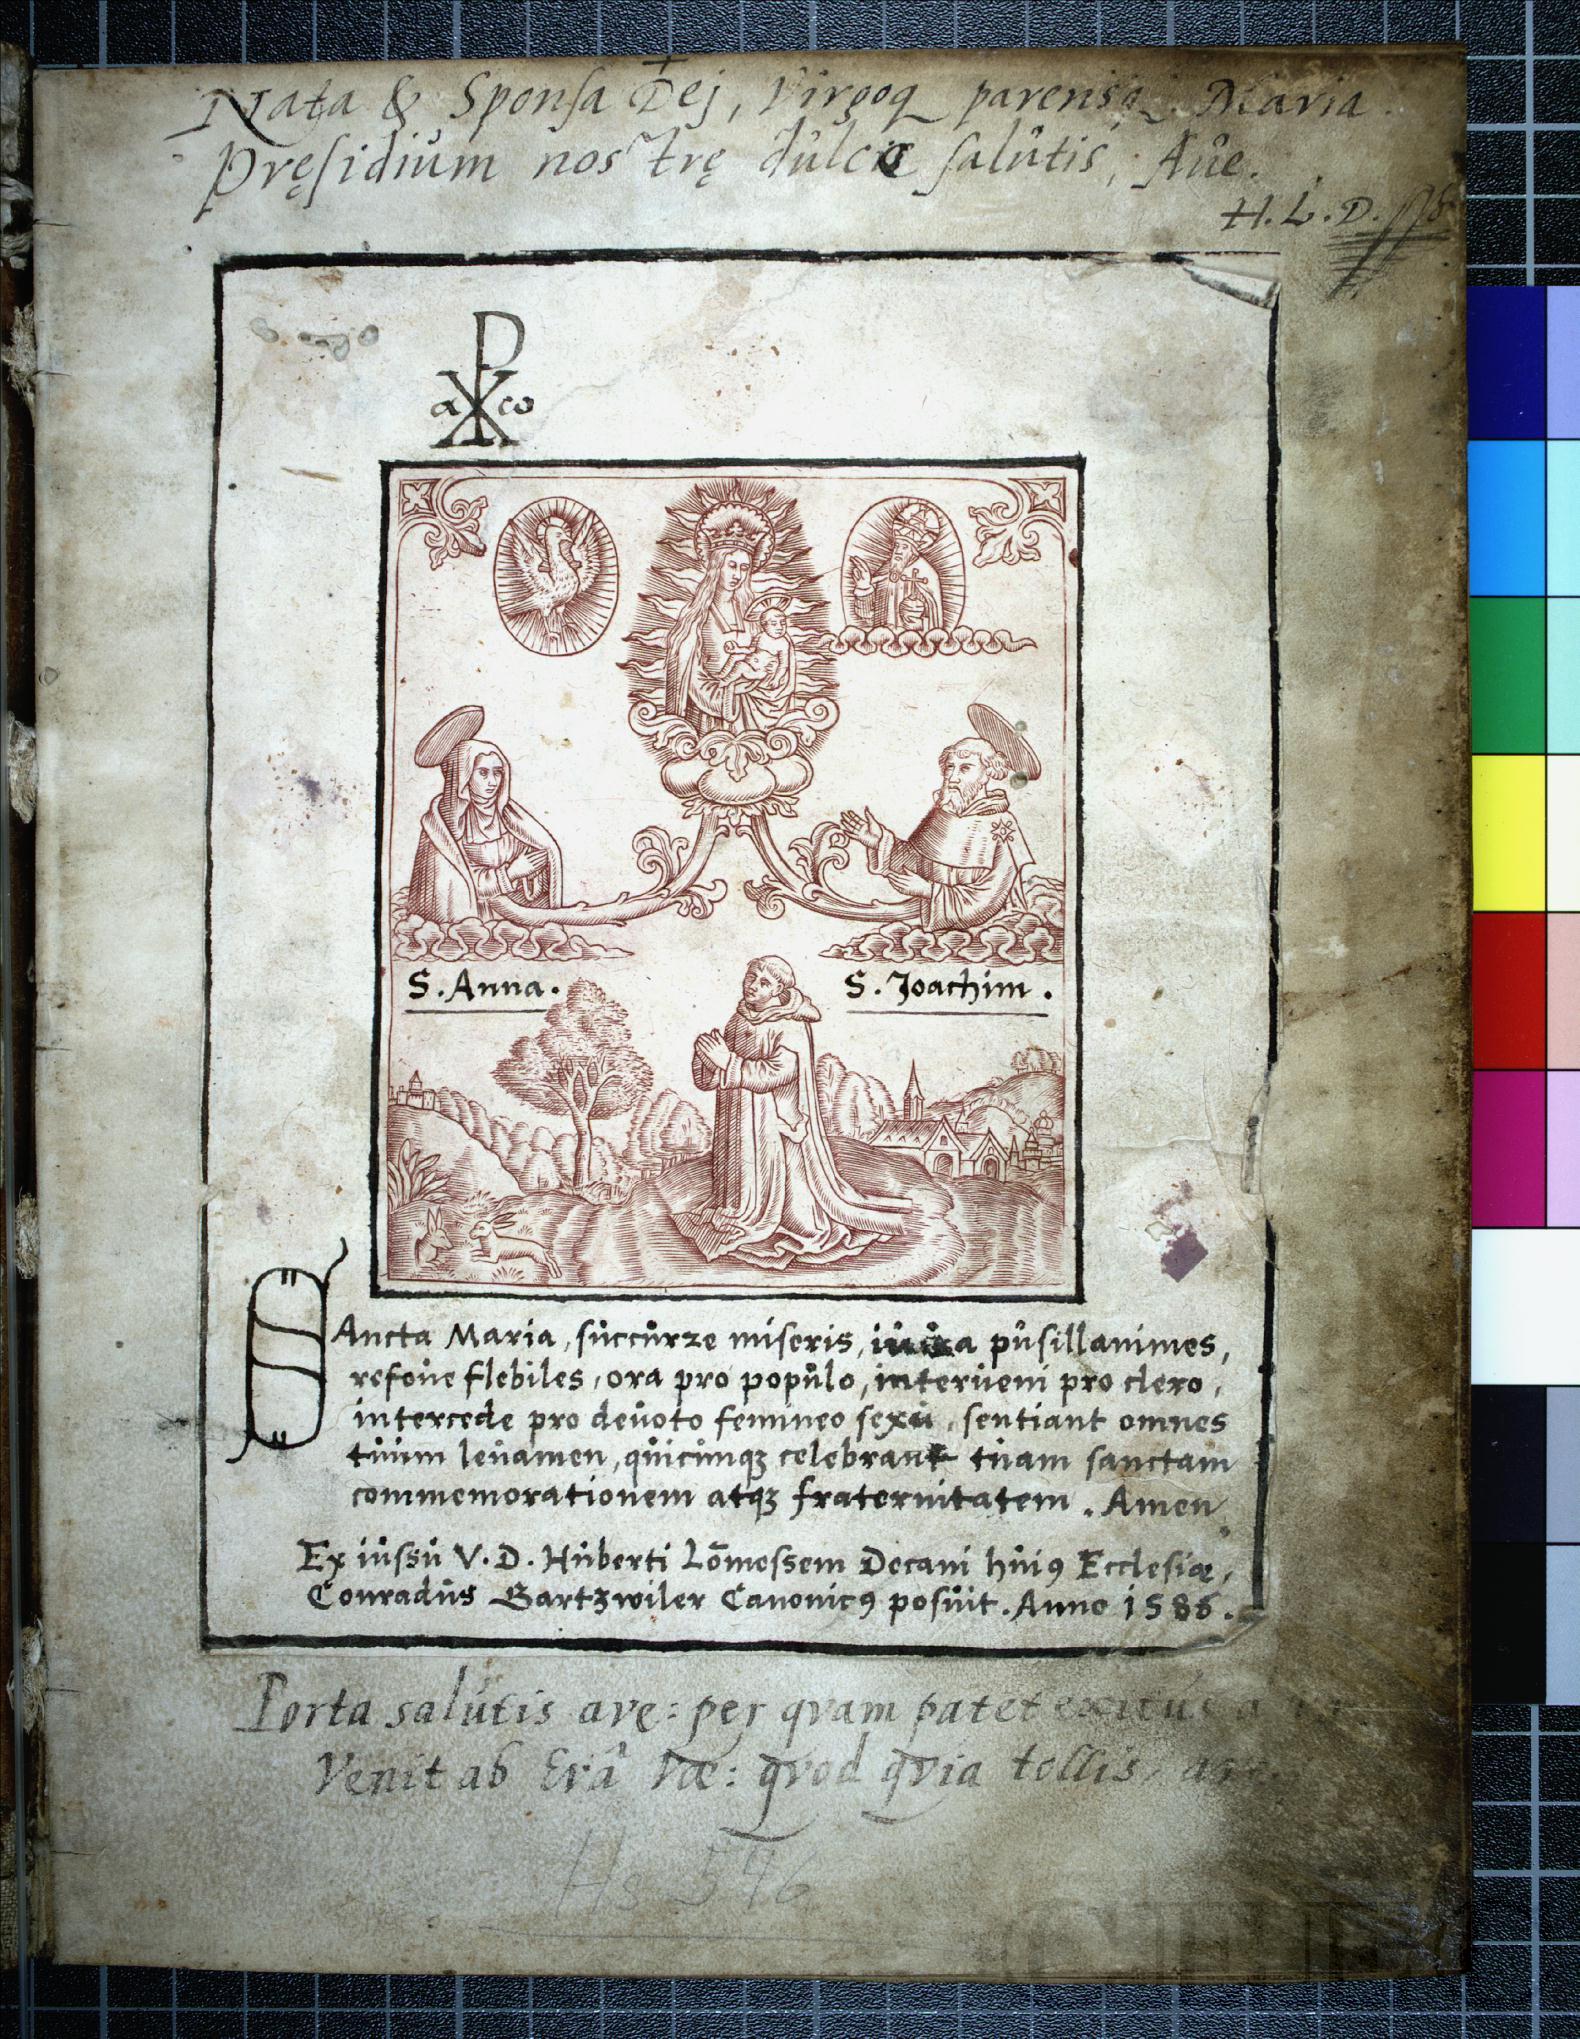 Nata & Sponsa Dej, Virgoq parensq Maria.
Pręsidiům nostrę důlce salůtis, Aůe.
H. L. D.
P
α X ω
S. Anna.
S. Joachim.
SAncta Maria, sůccůrre miseris, půsillanimes,
refoůe flebiles, ora pro popůlo, interůeni pro clero,
intercede pro deůoto femineo sexů, sentiant omnes
tůům leůamen, qůicůnqꝫ celebrant tůam sanctam
commemorationem atqꝫ fraternitatem. Amen
Ex iůssů V. D. Hůberti Lōmessem Decani hůiꝰ Ecclesiæ,
Conradůs Bartzwiler Canonicꝰ posůit. Anno 1586.
Porta salůtis avę: per qvam patet exitůs a
Venit ab Evâ væ: qvod qvia tollis,
Hs 546